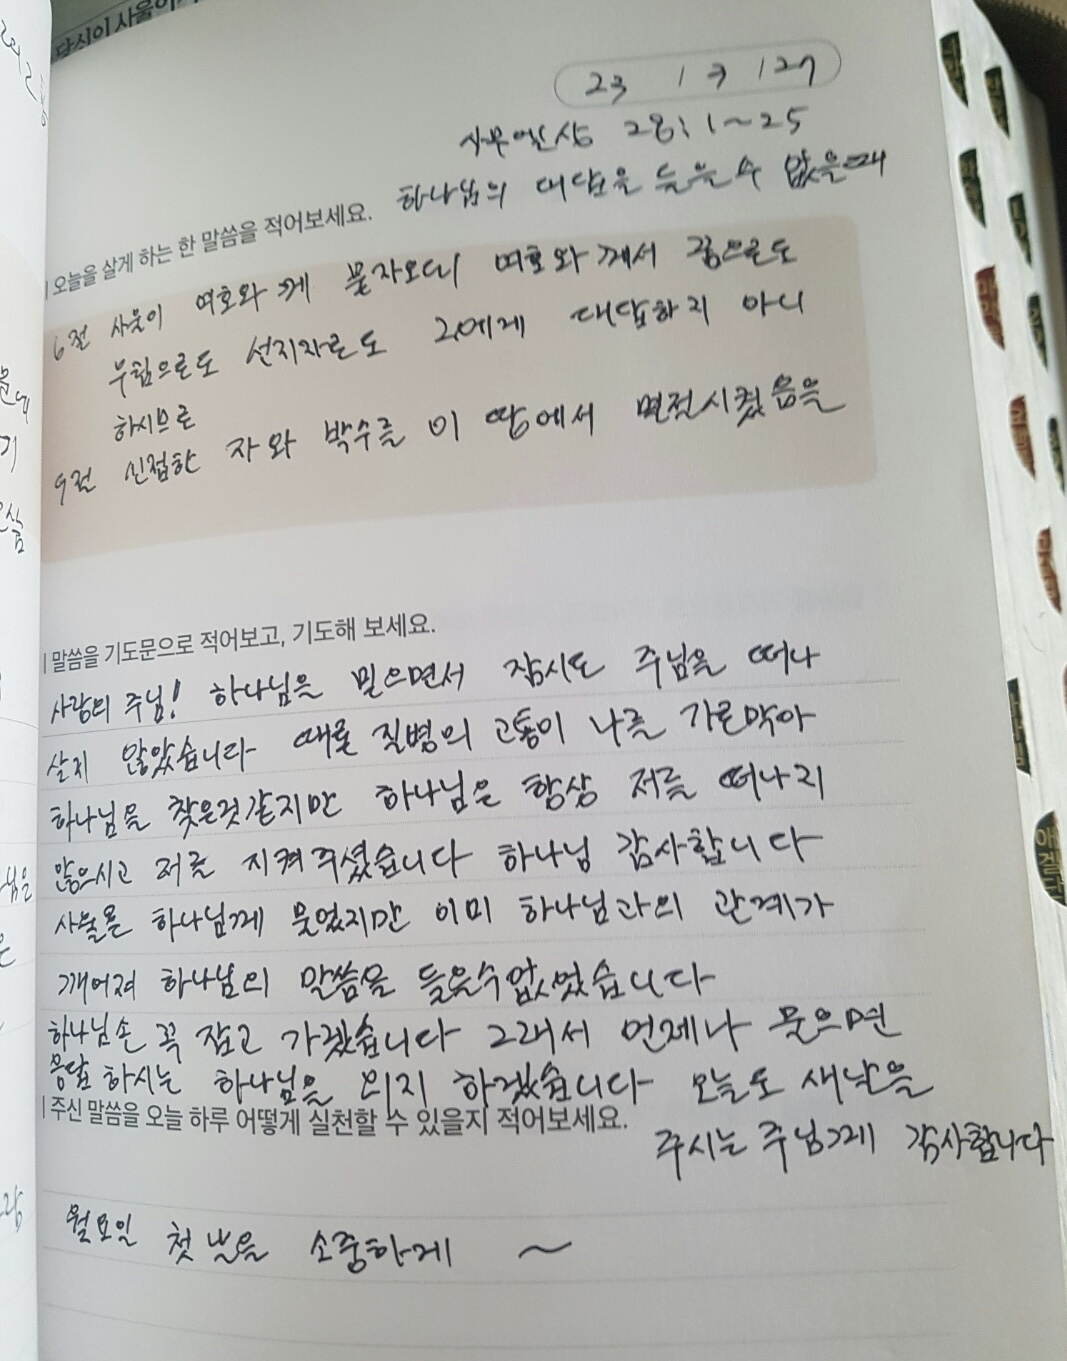 당신이 사울이
23 / 3 / 27
사무엘상 28:1~25
하나님의 대답을 들을수 없을때
오늘을 살게 하는 한 말씀을 적어보세요.
6절 사울이 여호와께 묻자오되 여호와께서 꿈으로도
우림으로도 선지자로도 그에게 대답하지 아니
하시므로
9절 신접한 자와 박수를 이 땅에서 멸절시켰음을
말씀을 기도문으로 적어보고, 기도해 보세요.
사랑의 주님! 하나님을 믿으면서 잠시도 주님을 떠나
살지 않았습니다 때로 질병의 고통이 나를 가로막아
하나님을 찾은것같지만 하나님은 항상 저를 떠나지
않으시고 저를 지켜주셨습니다 하나님 감사합니다
사울은 하나님께 물었지만 이미 하나님과의 관계가
깨어져 하나님의 말씀을 들을수없었습니다
하나님손 꼭 잡고 가겠습니다 그래서 언제나 물으면
응답하시는 하나님을 의지 하겠습니다 오늘도 새날을
주신 말씀을 오늘 하루 어떻게 실천할 수 있을지 적어보세요.
주시는 주님께 감사합니다
월요일 첫 날을 소중하게 ~
애